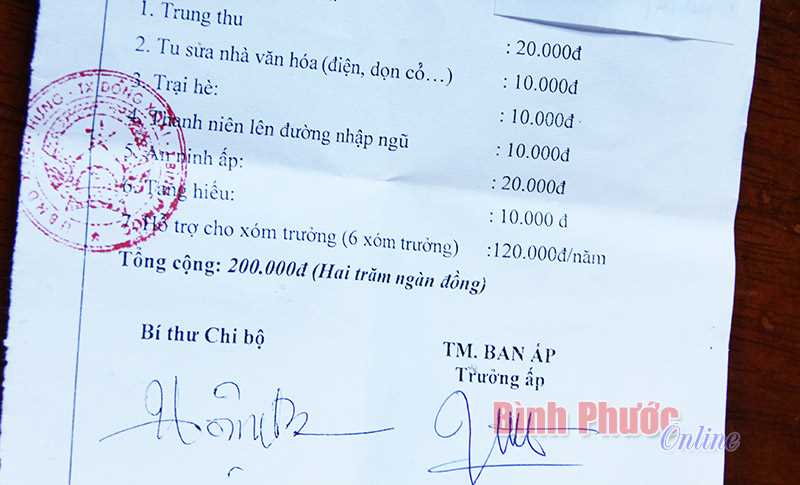 1. Trung thu : 20.000đ
2. Tu sửa nhà văn hóa (điện, dọn cỏ…) : 10.000đ
3. Trại hè: : 10.000đ
4. Thanh niên lên đường nhập ngũ : 10.000đ
5. An ninh ấp: : 20.000đ
6. Tang hiếu: : 10.000 đ
7. Hỗ trợ cho xóm trưởng (6 xóm trưởng) :120.000đ/năm
Tổng cộng: 200.000đ (Hai trăm ngàn đồng)
Bí thư Chi bộ
TM. BAN ẤP
Trưởng ấp
Bình Phước
Online